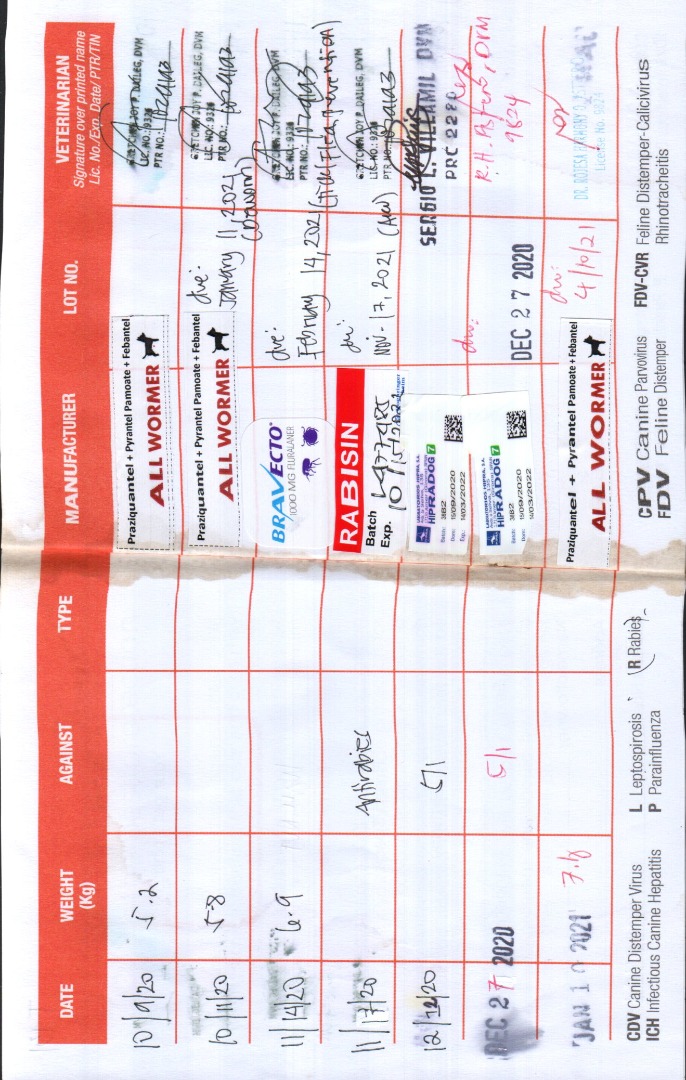 DATE
WEIGHT
(Kg)
AGAINST
TYPE
MANUFACTURER
LOT NO.
VETERINARIAN
Signature over printed name
Lic. No./Exp. Date/ PTR/TIN
10/9/20
5.2
Praziquantel + Pyrantel Pamoate + Febantel
ALL WORMER
DALEG, DVM
LIC. NO.: 9336
PTR NO.:
10/11/20
5.8
Praziquantel + Pyrantel Pamoate + Febantel
ALL WORMER
due:
January 11, 2021
(Deworm)
DALEG, DVM
LIC. NO.: 9336
PTR NO.:
11/14/20
6.9
BRAVECTO
1000 MG FLURALANER
due:
February 14, 2021 (Tick/Flea prevention)
LIC. NO.: 9336
PTR NO.:
11/17/20
Antirabies
RABISIN
Batch L477485
Exp.
due:
NOV. 17, 2021 (ARV)
DALEG, DVM
LIC. NO.: 9336
PTR NO.:
12/12/20
5/1
LABORATORIOS HIPRA, S.A.
HIPRADOG 7
Batch: 3IB2
Date: 15/09/2020
Exp.: 14/03/2022
SERGIO L. VILLAMIL DVM
PRC 2280
DEC 27 2020
5/1
LABORATORIOS HIPRA, S.A.
HIPRADOG 7
due:
DEC 27 2020
DVM
9824
JAN 10 2021
7.6
Praziquantel + Pyrantel Pamoate + Febantel
ALL WORMER
due:
4/10/21
License No.
CDV Canine Distemper Virus
ICH Infectious Canine Hepatitis
L Leptospirosis
P Parainfluenza
R Rabies
CPV Canine Parvovirus
FDV Feline Distemper
FDV-CVR Feline Distemper-Calicivirus
Rhinotracheitis